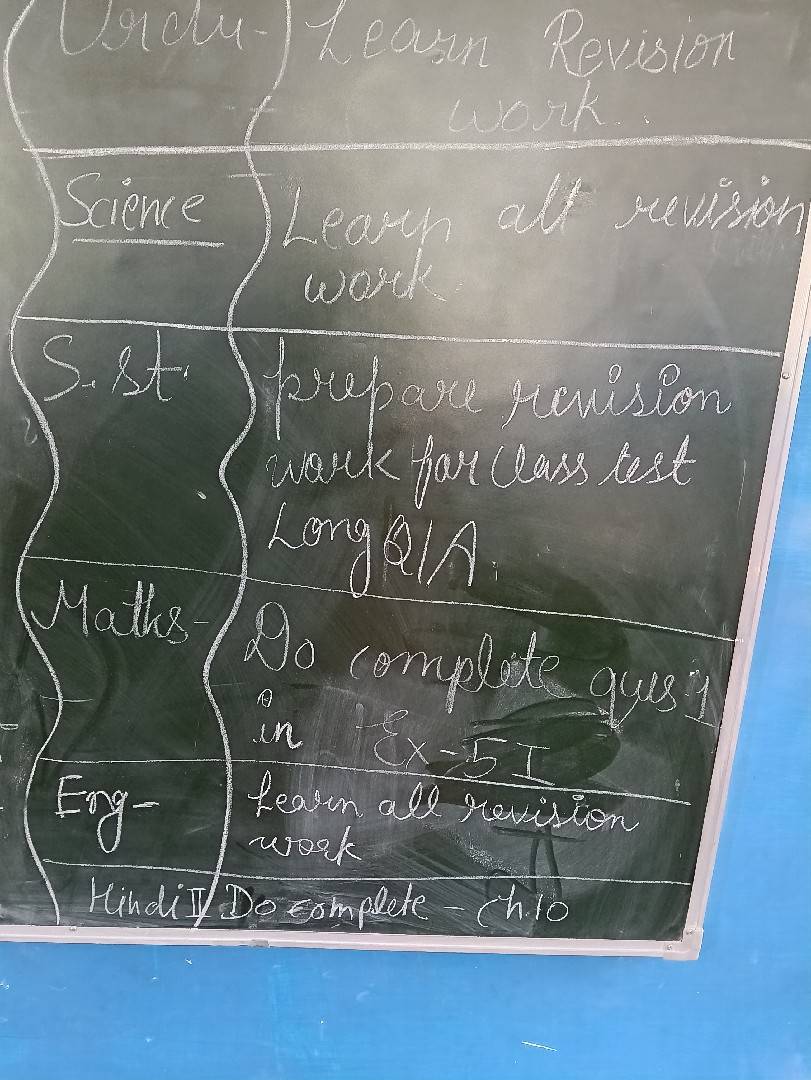 Urdu- Learn Revision
work..
Science Learn all revision
work.
S.st. prepare revision
work for Class test
Long Q/A.
Maths- Do complete ques 1
in Ex-5 I
Eng- Learn all revision
work
Hindi II Do complete - Ch.10